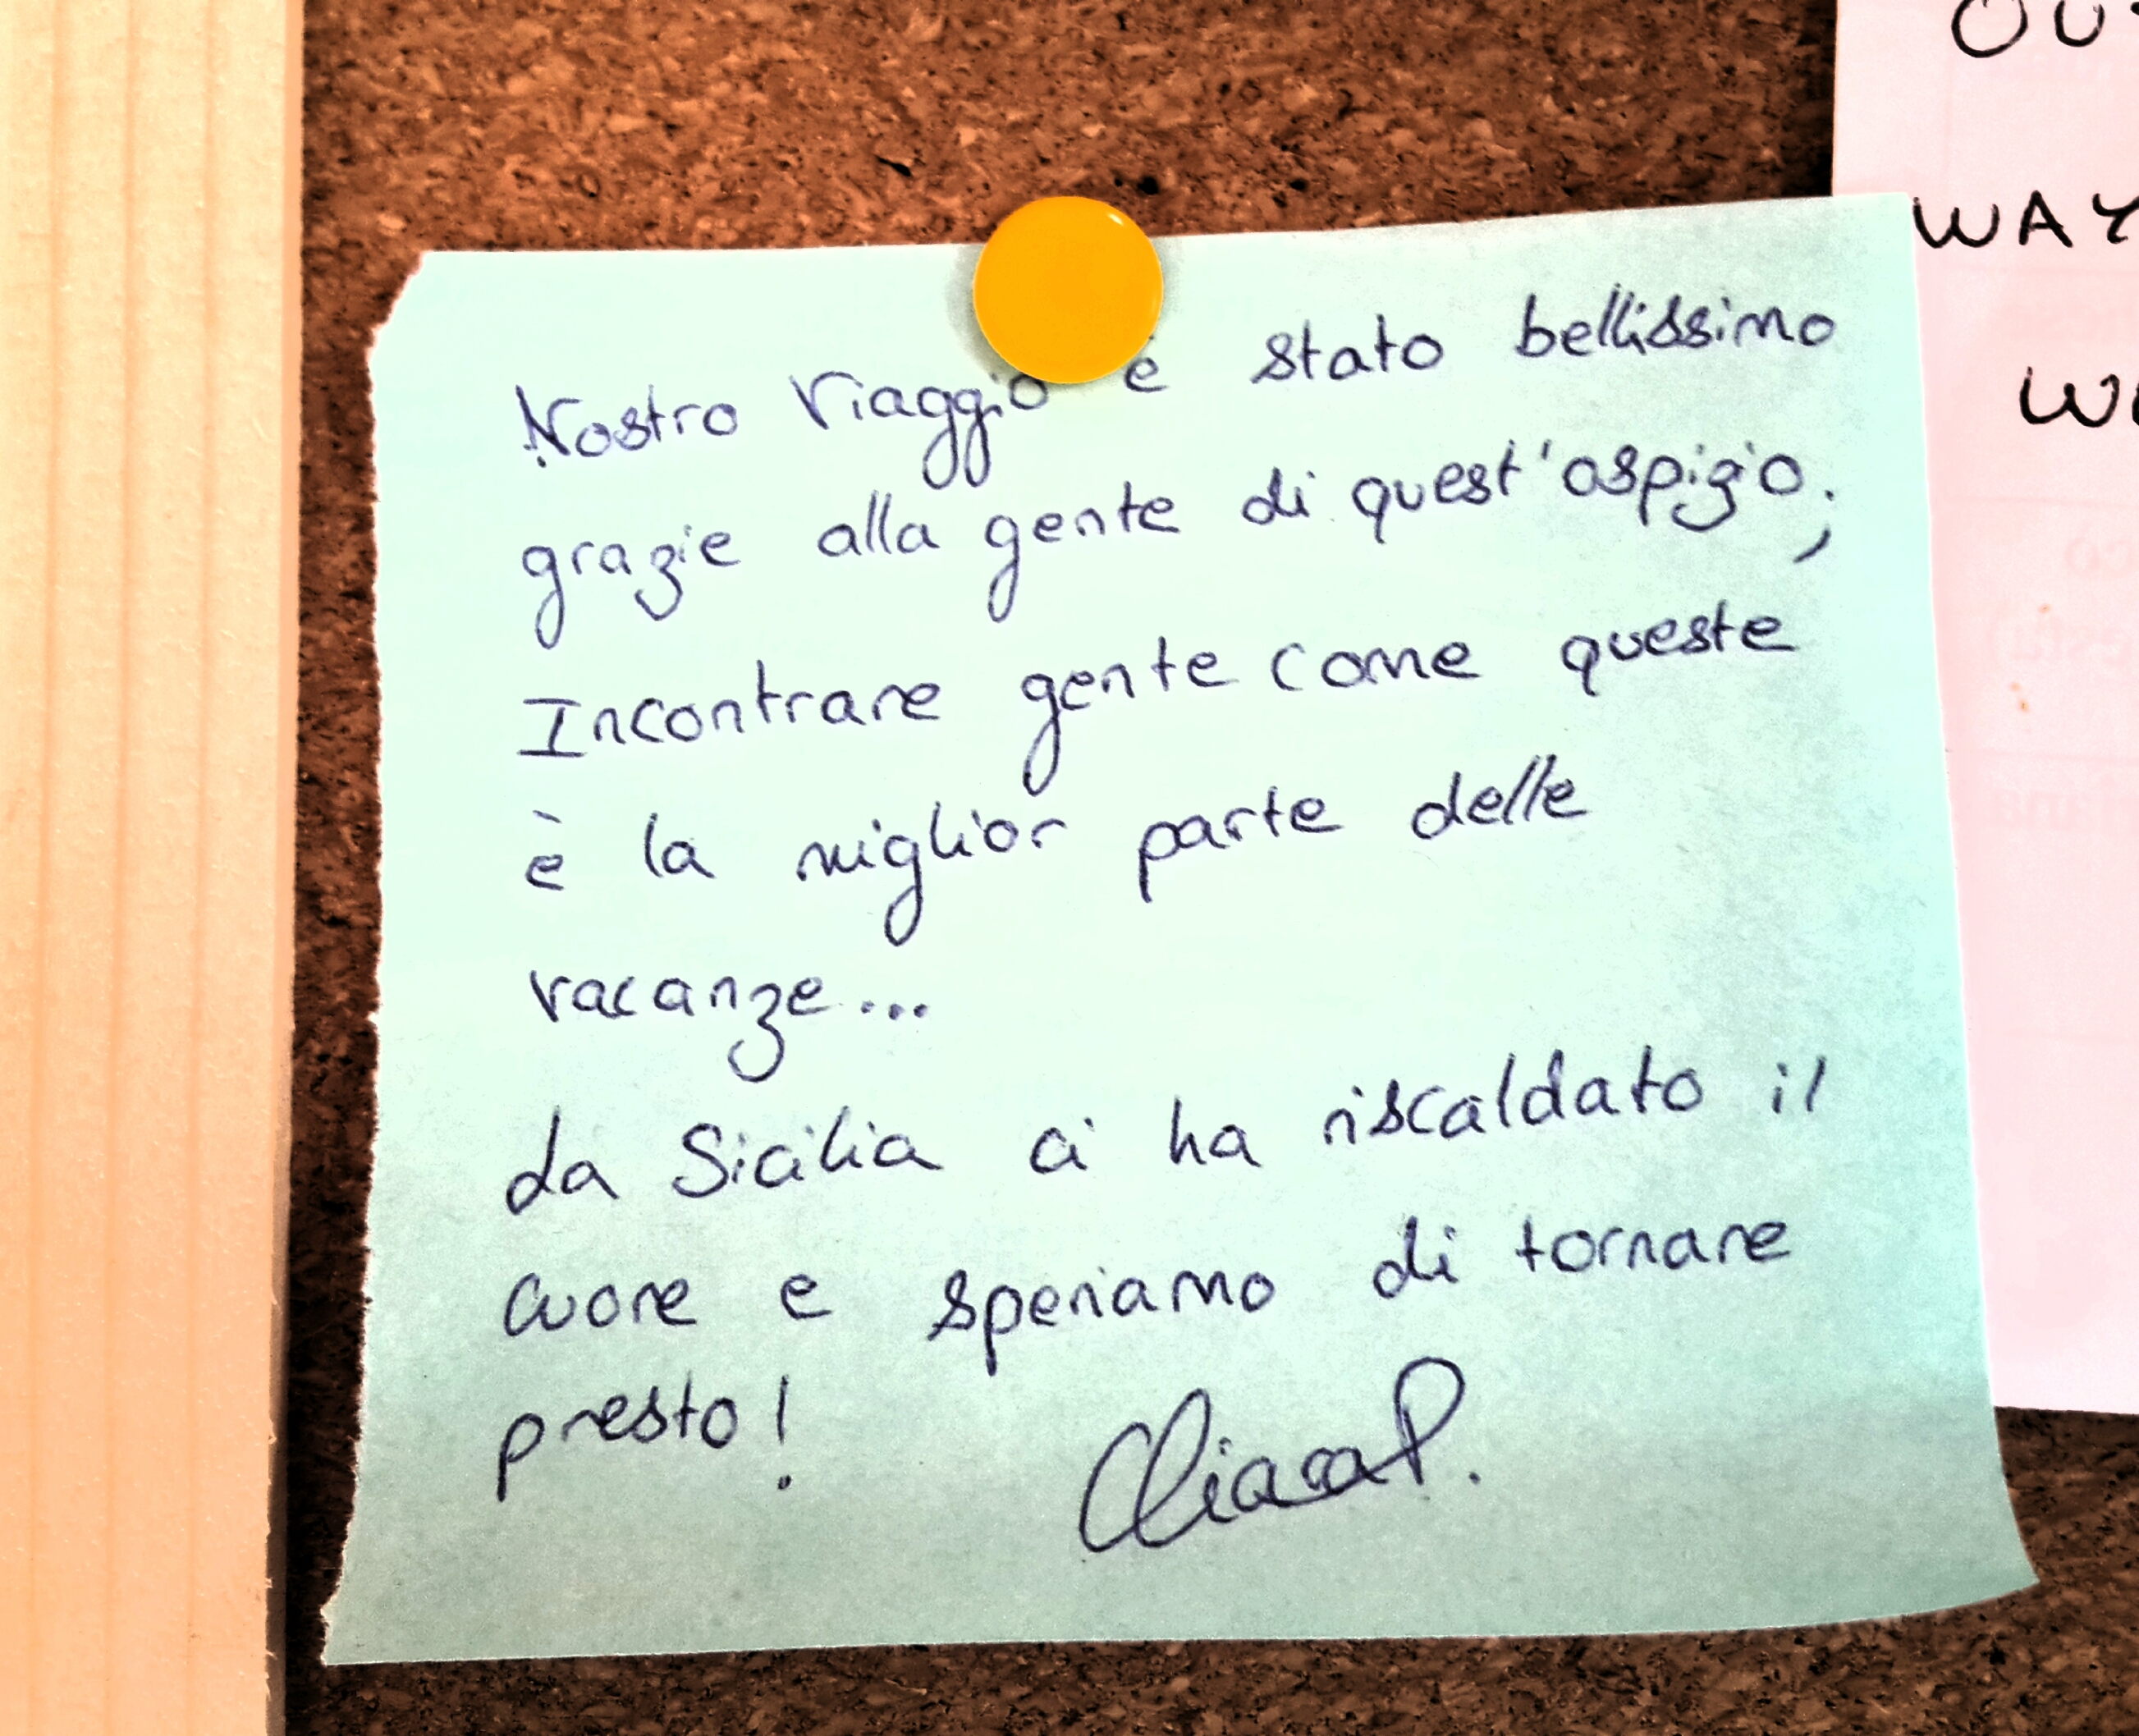 Nostro Viaggio è stato bellissimo
grazie alla gente di quest'ospizio;
Incontrare gente come queste
è la miglior parte delle
vacanze...
La Sicilia ci ha riscaldato il
cuore e speriamo di tornare
presto!
Chiara P.
WAY